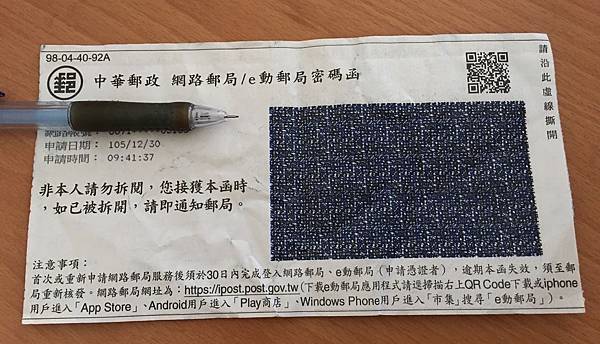 98-04-40-92A
郵
中華郵政 網路郵局/e動郵局密碼函
請沿此虛線撕開
申請日期： 105/12/30
申請時間： 09:41:37
非本人請勿拆閱，您接獲本函時
，如已被拆開，請即通知郵局。
注意事項：
首次或重新申請網路郵局服務後須於30日內完成登入網路郵局、e動郵局（申請憑證者），逾期本函失效，須至郵
局重新核發。網路郵局網址為：https://ipost.post.gov.tw(下載e動郵局應用程式請逕掃描右上QR Code下載或iphone
用戶進入「App Store」、Android用戶進入「Play商店」、Windows Phone用戶進入「市集」搜尋「e動郵局」)。